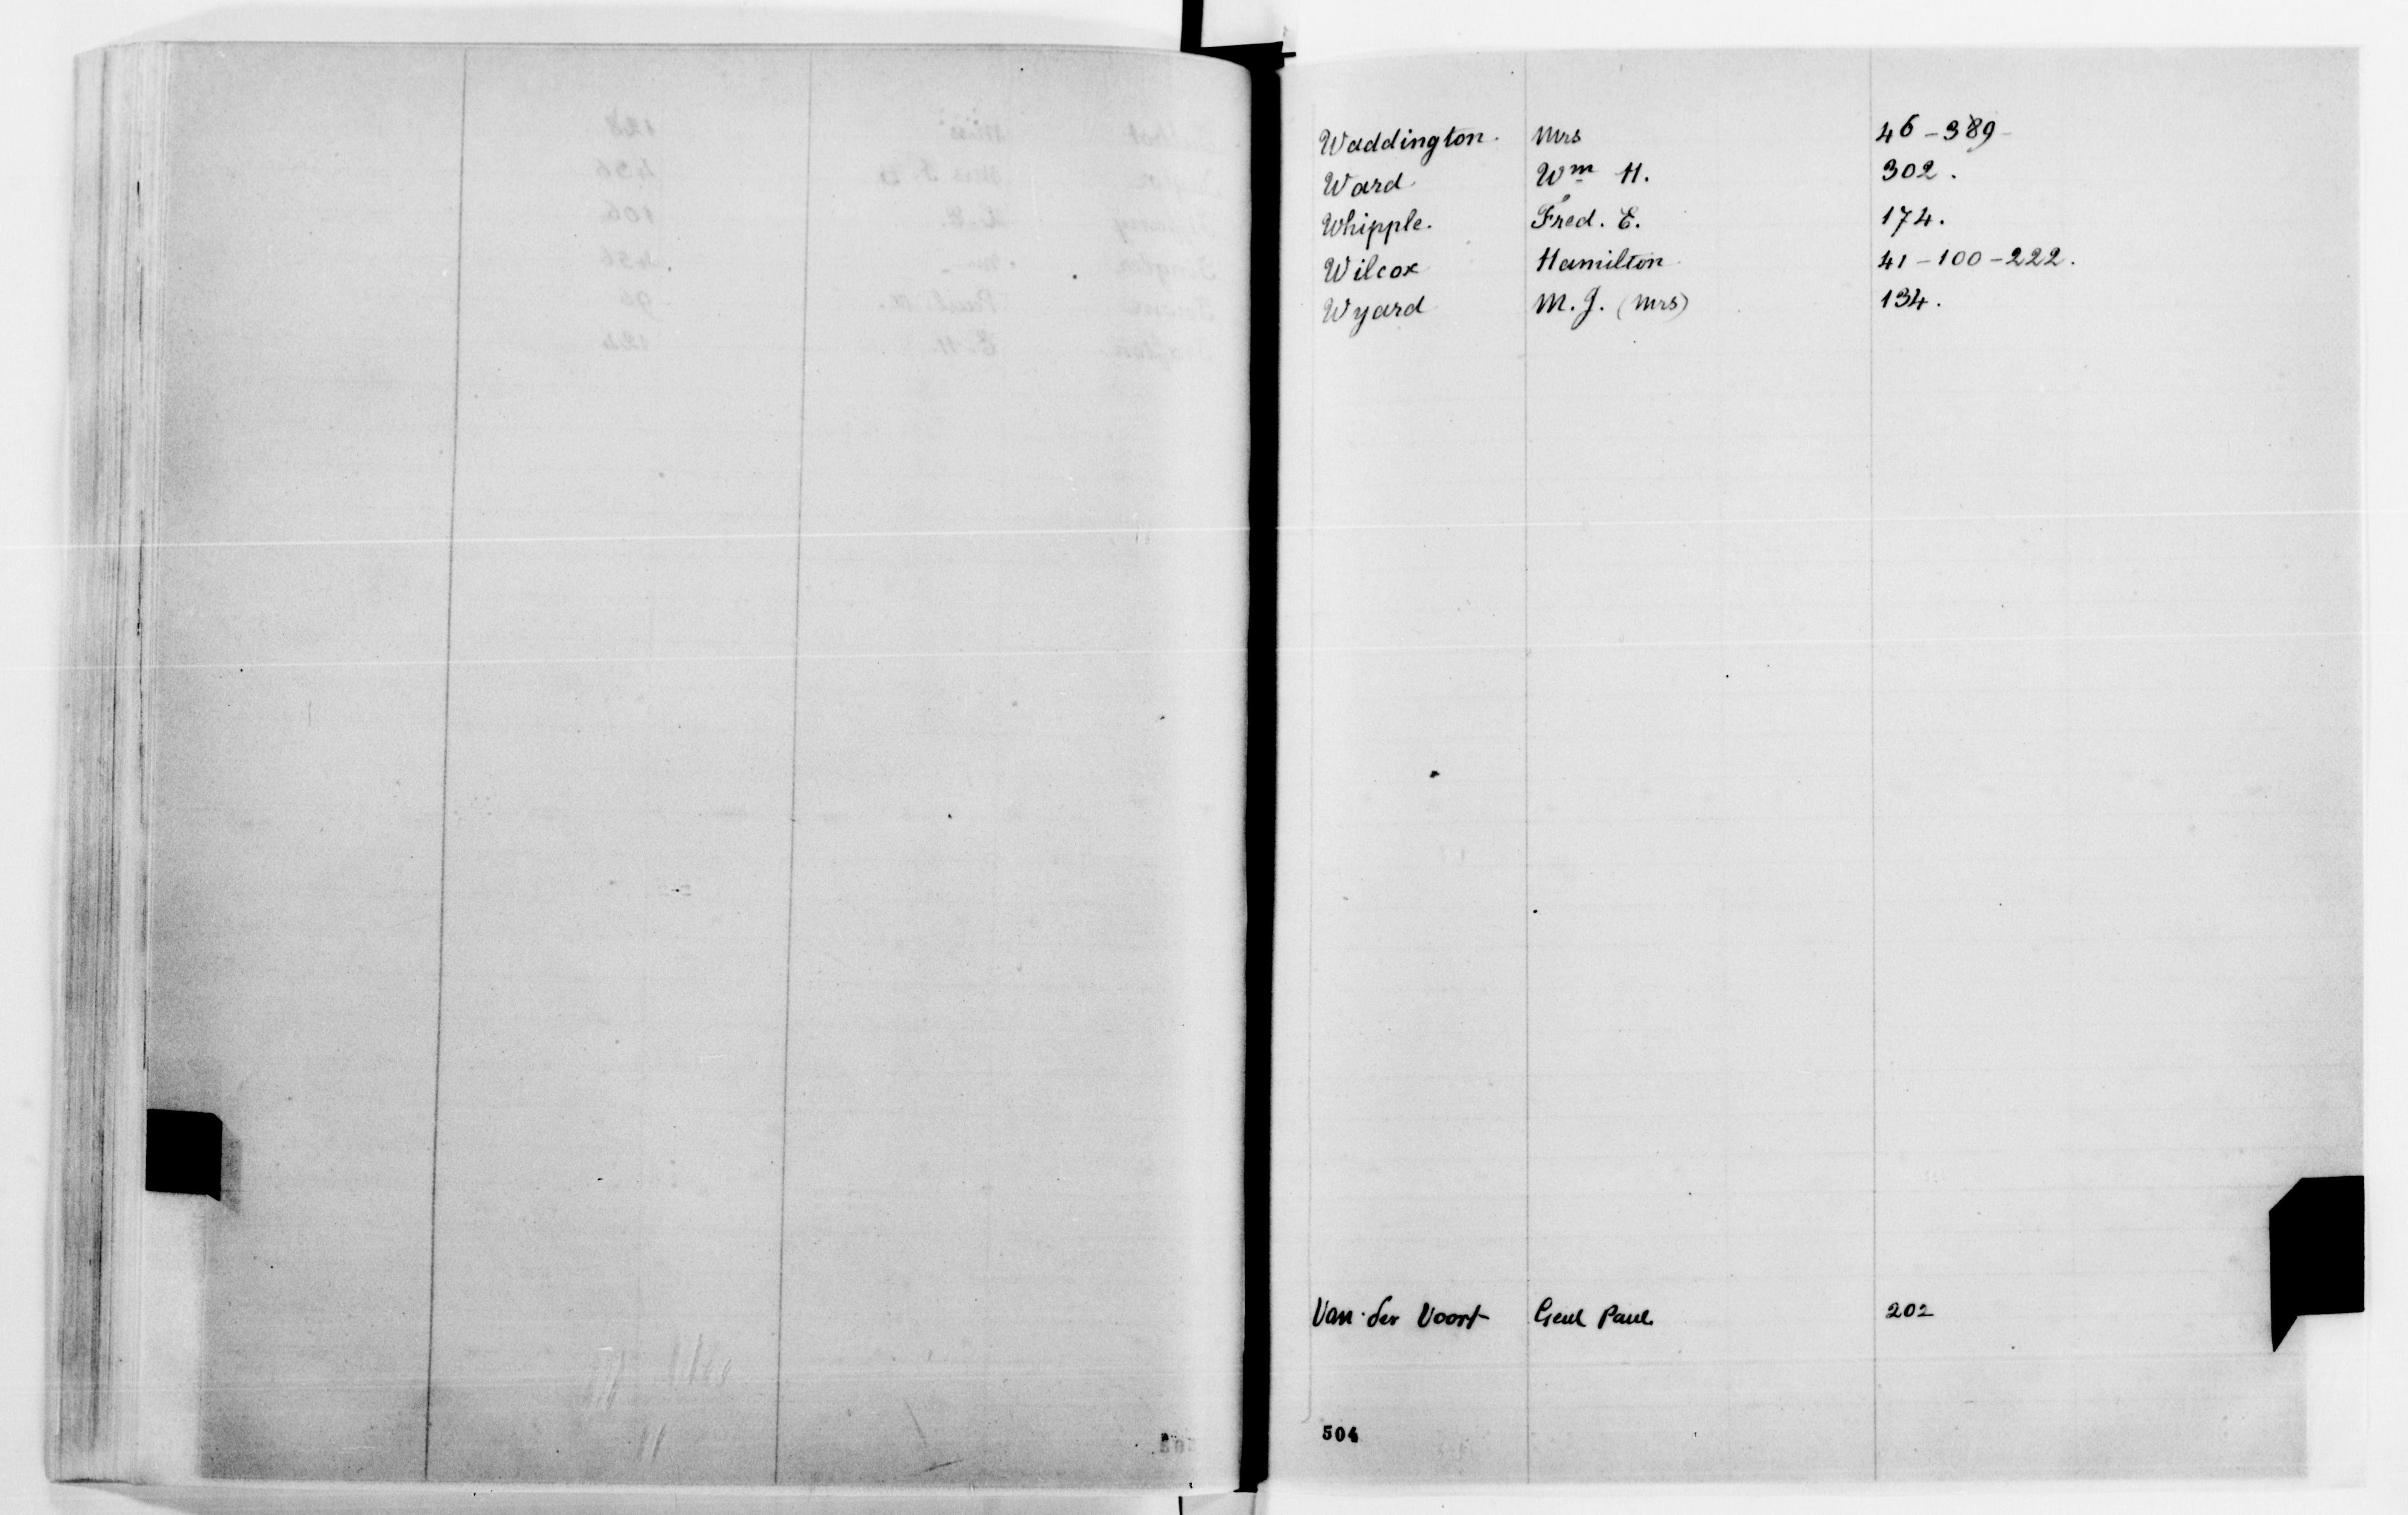 Waddington. Mrs 46-389-
Ward Wm H. 302.
Whipple. Fred. E. 174.
Wilcox Hamilton 41-100-222.
Wyard M. J. (Mrs) 134.
Van der Voort Genl Paul. 202
504